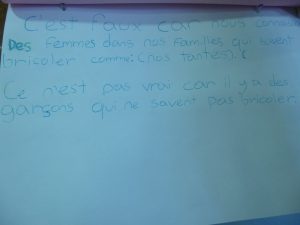 C'est faux car nous connai
Des femmes dans nos familles qui savent
bricoler comme: (nos tantes).
Ce n'est pas vrai car il y a des
garçons qui ne savent pas bricoler